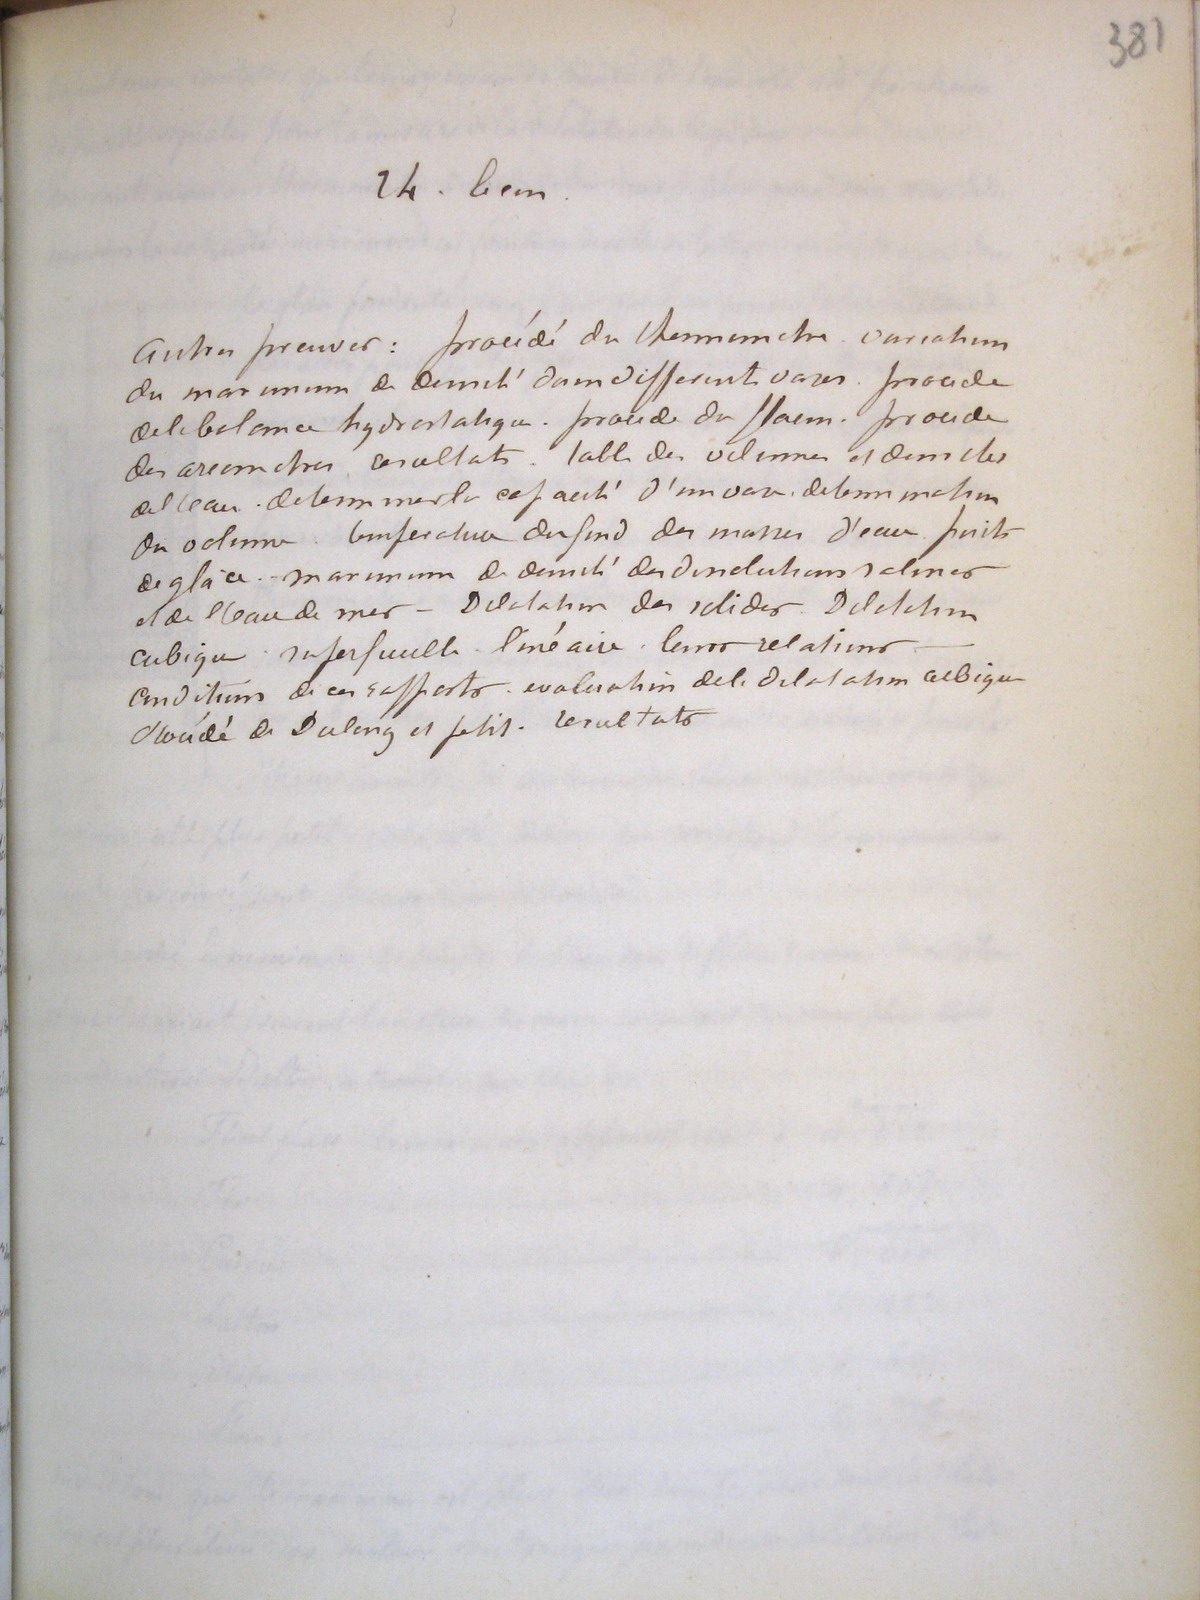 381
24. leçon.
Autres preuves : procédé du thermomètre. variations
du maximum de densité dans different vases. procede
de la balance hydrostatique. procede du flacon. procede
des areometres resultats. table des volumes et densites
de l'eau. determiner la capacité d'un vase. determination
du volume. temperature du fond des masses d'eau. puits
de glace. - maximum de densité des dissolutions salines
et de l'eau de mer - Dilatation des solides. Dilatation
cubique superficielle linéaire. leurs relations -
conditions de ces rapports. evaluation de la dilatation cubique
procédé de Dulong et petit. resultats